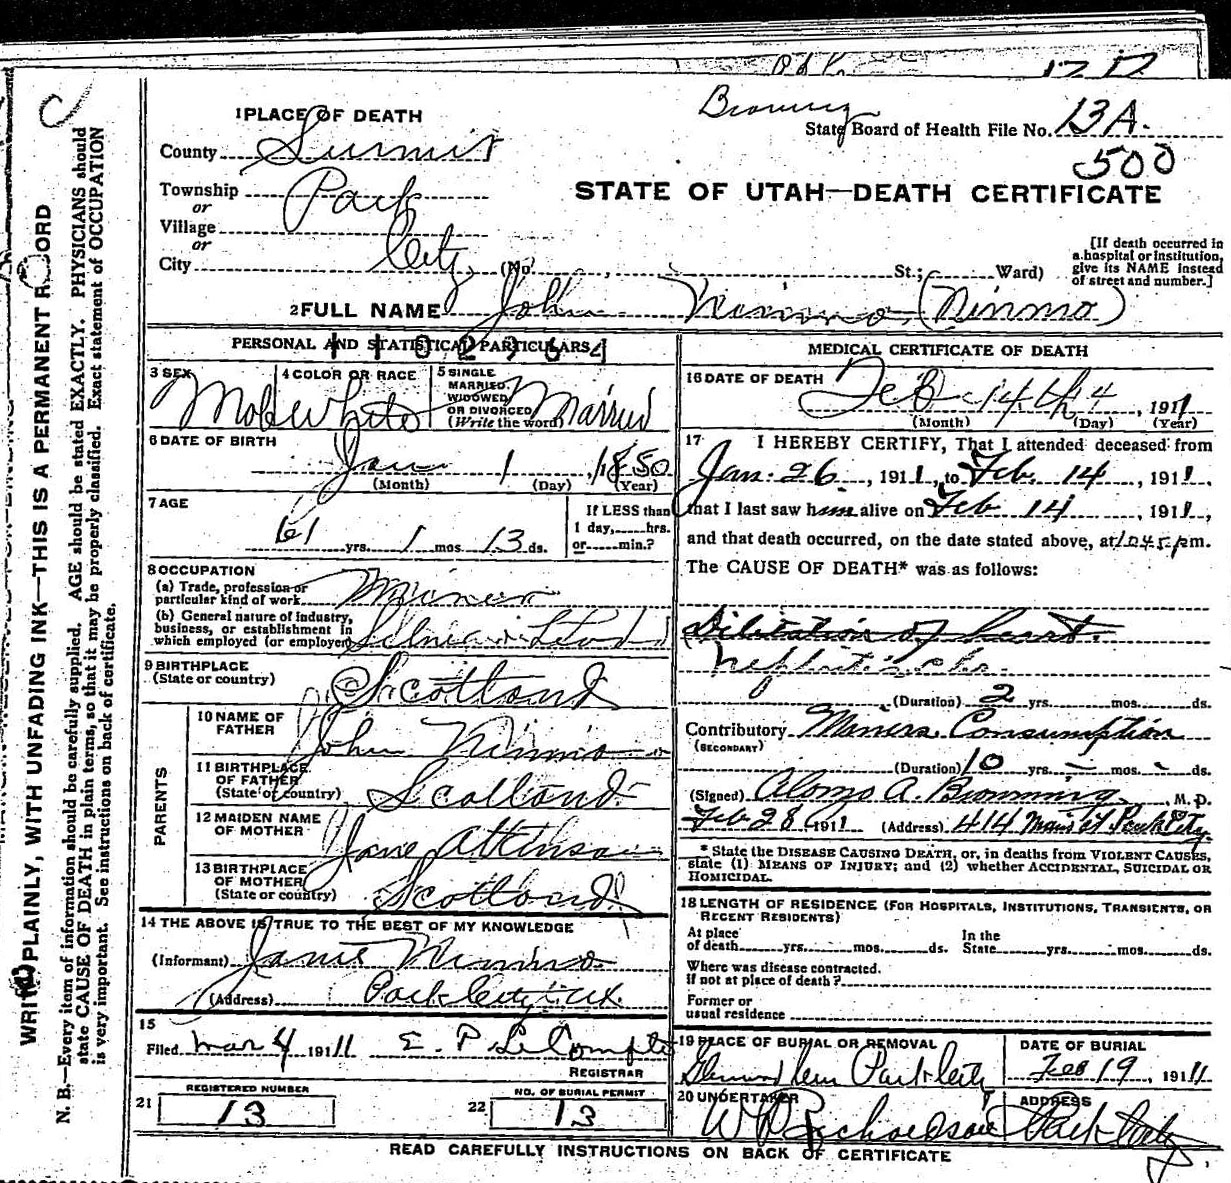 Browning
State Board of Health File No. 13A.
500
STATE OF UTAH—DEATH CERTIFICATE
1 PLACE OF DEATH
County Summit
Township Park
or
Village
or
City City (No. St.; Ward)
[If death occurred in
a hospital or institution,
give its NAME instead
of street and number.]
2 FULL NAME John Nimmo (Nimmo)
PERSONAL AND STATISTICAL PARTICULARS
3 SEX Male
4 COLOR OR RACE White
5 SINGLE
MARRIED,
WIDOWED
OR DIVORCED
(Write the word) Married
6 DATE OF BIRTH
Jan 1, 1850
(Month) (Day) (Year)
7 AGE
61 yrs. 1 mos. 13 ds.
If LESS than
1 day, hrs.
or min.?
8 OCCUPATION
(a) Trade, profession or
particular kind of work Miner
(b) General nature of industry,
business, or establishment in
which employed (or employer)
9 BIRTHPLACE
(State or country) Scotland
PARENTS
10 NAME OF
FATHER John Nimmo
11 BIRTHPLACE
OF FATHER
(State or country) Scotland
12 MAIDEN NAME
OF MOTHER Jane Attkinson
13 BIRTHPLACE
OF MOTHER
(State or country) Scotland
14 THE ABOVE IS TRUE TO THE BEST OF MY KNOWLEDGE
(Informant) Nimmo
(Address) Park City Ut.
15
Filed Mar 4 1911 E. P. LeCompte
REGISTRAR
REGISTERED NUMBER
21 13
NO. OF BURIAL PERMIT
22 13
MEDICAL CERTIFICATE OF DEATH
16 DATE OF DEATH Feb 14th, 1911
(Month) (Day) (Year)
17 I HEREBY CERTIFY, That I attended deceased from
Jan. 26, 1911, to Feb. 14, 1911,
that I last saw him alive on Feb 14, 1911,
and that death occurred, on the date stated above, at 10 45 pm.
The CAUSE OF DEATH* was as follows:
Dilitation of heart.
(Duration) 2 yrs. mos. ds.
Contributory Miners Consumption
(SECONDARY)
(Duration) 10 yrs. - mos. - ds.
(Signed) Alonzo A. Browning, M. D.
Feb 28 1911 (Address) 414 Main St Park City
* State the DISEASE CAUSING DEATH, or, in deaths from VIOLENT CAUSES,
state (1) MEANS OF INJURY; and (2) whether ACCIDENTAL, SUICIDAL OR
HOMICIDAL.
18 LENGTH OF RESIDENCE (FOR HOSPITALS, INSTITUTIONS, TRANSIENTS, OR
RECENT RESIDENTS)
At place
of death yrs. mos. ds.
In the
State yrs. mos. ds.
Where was disease contracted.
if not at place of death?
Former or
usual residence
19 PLACE OF BURIAL OR REMOVAL
Park City
DATE OF BURIAL
Feb 19, 1911
20 UNDERTAKER
W P Richardson
ADDRESS
Park City
READ CAREFULLY INSTRUCTIONS ON BACK OF CERTIFICATE
WRITE PLAINLY, WITH UNFADING INK—THIS IS A PERMANENT RECORD
N. B.—Every item of information should be carefully supplied. AGE should be stated EXACTLY. PHYSICIANS should
state CAUSE OF DEATH in plain terms, so that it may be properly classified. Exact statement of OCCUPATION
is very important. See instructions on back of certificate.